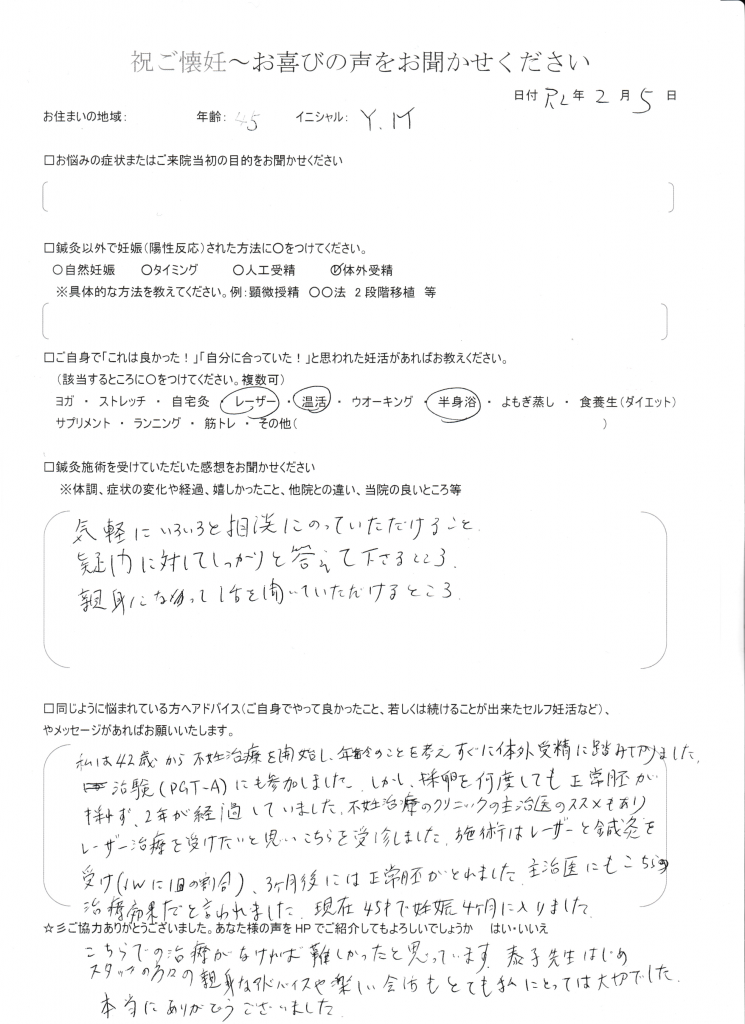 祝ご懐妊～お喜びの声をお聞かせください
日付 R2年 2月 5日
お住まいの地域： 年齢：45 イニシャル：Y.M
□お悩みの症状またはご来院当初の目的をお聞かせください
□鍼灸以外で妊娠（陽性反応）された方法に〇をつけてください。
〇自然妊娠 〇タイミング 〇人工受精 〇体外受精
※具体的な方法を教えてください。例：顕微授精 〇〇法 2段階移植 等
□ご自身で「これは良かった！」「自分に合っていた！」と思われた妊活があればお教えください。
（該当するところに〇をつけてください。複数可）
ヨガ ・ ストレッチ ・ 自宅灸 ・ レーザー ・ 温活 ・ ウオーキング ・ 半身浴 ・ よもぎ蒸し ・ 食養生（ダイエット）
サプリメント ・ ランニング ・ 筋トレ ・ その他（ ）
□鍼灸施術を受けていただいた感想をお聞かせください
※体調、症状の変化や経過、嬉しかったこと、他院との違い、当院の良いところ等
気軽にいろいろと相談にのっていただけること.
疑問に対してしっかりと答えて下さるところ.
親身になって話を聞いていただけるところ.
□同じように悩まれている方へアドバイス（ご自身でやって良かったこと、若しくは続けることが出来たセルフ妊活など）、
やメッセージがあればお願いいたします。
私は42歳から不妊治療を開始し、年齢のことを考えすぐに体外受精に踏み切りました.
治験（PGT-A）にも参加しました. しかし、採卵を何度しても正常胚が
採れず、2年が経過していました. 不妊治療のクリニックの主治医のススメもあり
レーザー治療を受けたいと思いこちらを受診しました. 施術はレーザーと鍼灸を
受け（1Wに1回の割合）、3ヶ月後には正常胚がとれました. 主治医にもこちらの
治療効果だと言われました. 現在45才で妊娠4ヶ月に入りました.
☆彡ご協力ありがとうございました。あなた様の声をHPでご紹介してもよろしいでしょうか はい・いいえ
こちらでの治療がなければ難しかったと思っています. 泰子先生はじめ
スタッフの方々の親身なアドバイスや楽しい会話もとても私にとっては大切でした.
本当にありがとうございました.